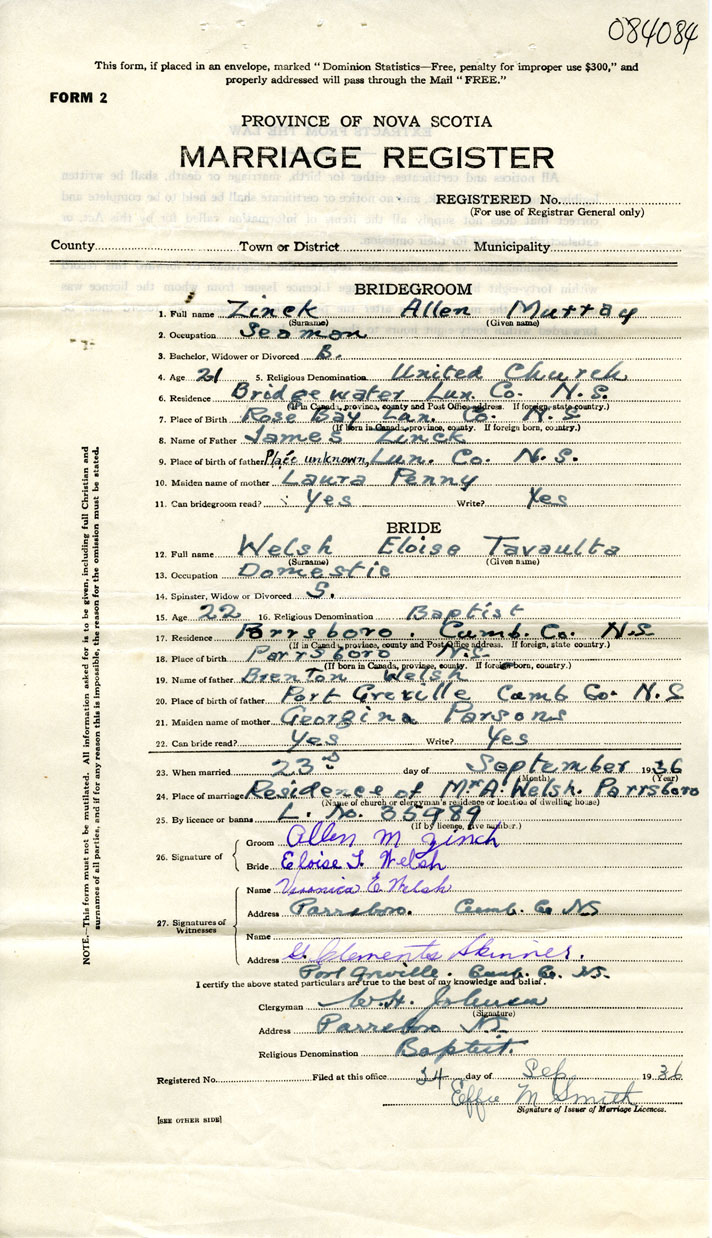 084084
This form, if placed in an envelope, marked "Dominion Statistics—Free, penalty for improper use $300," and
properly addressed will pass through the Mail "FREE."
FORM 2
PROVINCE OF NOVA SCOTIA
MARRIAGE REGISTER
REGISTERED No.
(For use of Registrar General only)
County Town or District Municipality
BRIDEGROOM
1. Full name Zinck Allen Murray
(Surname) (Given name)
2. Occupation Seaman
3. Bachelor, Widower or Divorced B.
4. Age 21 5. Religious Denomination United Church
6. Residence Bridgewater Lun. Co. N.S.
(If in Canada, province, county and Post Office address. If foreign, state country.)
7. Place of Birth Rose Bay Lun. Co. N.S.
(If born in Canada, province, county. If foreign born, country.)
8. Name of Father James Zinck
9. Place of birth of father Place unknown, Lun. Co. N.S.
10. Maiden name of mother Laura Penny
11. Can bridegroom read? Yes Write? Yes
BRIDE
12. Full name Welsh Eloise Tavaulta
(Surname) (Given name)
13. Occupation Domestic
14. Spinster, Widow or Divorced S.
15. Age 22 16. Religious Denomination Baptist
17. Residence Parrsboro. Cumb. Co. N.S.
(If in Canada, province, county and Post Office address. If foreign, state country.)
18. Place of birth Parrsboro N.S.
(If born in Canada, province, county. If foreign born, country.)
19. Name of father Brenton Welsh
20. Place of birth of father Port Greville Cumb Co. N.S
21. Maiden name of mother Georgina Parsons
22. Can bride read? Yes Write? Yes
23. When married 23rd day of September 1936
(Month) (Year)
24. Place of marriage Residence of Mr A. Welsh. Parrsboro
(Name of church or clergyman's residence or location of dwelling house)
25. By licence or banns L. No. 35989
(If by licence, give number.)
26. Signature of Groom Allen M Zinck
Bride Eloise T. Welsh
27. Signatures of Witnesses
Name Veronica E. Welsh
Address Parrsboro. Cumb. Co NS
Name
Address G. Clements Skinner.
Port Greville. Cumb. Co. N.S.
I certify the above stated particulars are true to the best of my knowledge and belief.
Clergyman W. H. Johnson
(Signature)
Address Parrsboro N.S.
Religious Denomination Baptist.
Registered No. Filed at this office 24 day of Sep. 1936
Effie M Smith
Signature of Issuer of Marriage Licences.
[SEE OTHER SIDE]
NOTE.—This form must not be mutilated. All information asked for is to be given, including full Christian and
surnames of all parties, and if for any reason this is impossible, the reason for the omission must be stated.